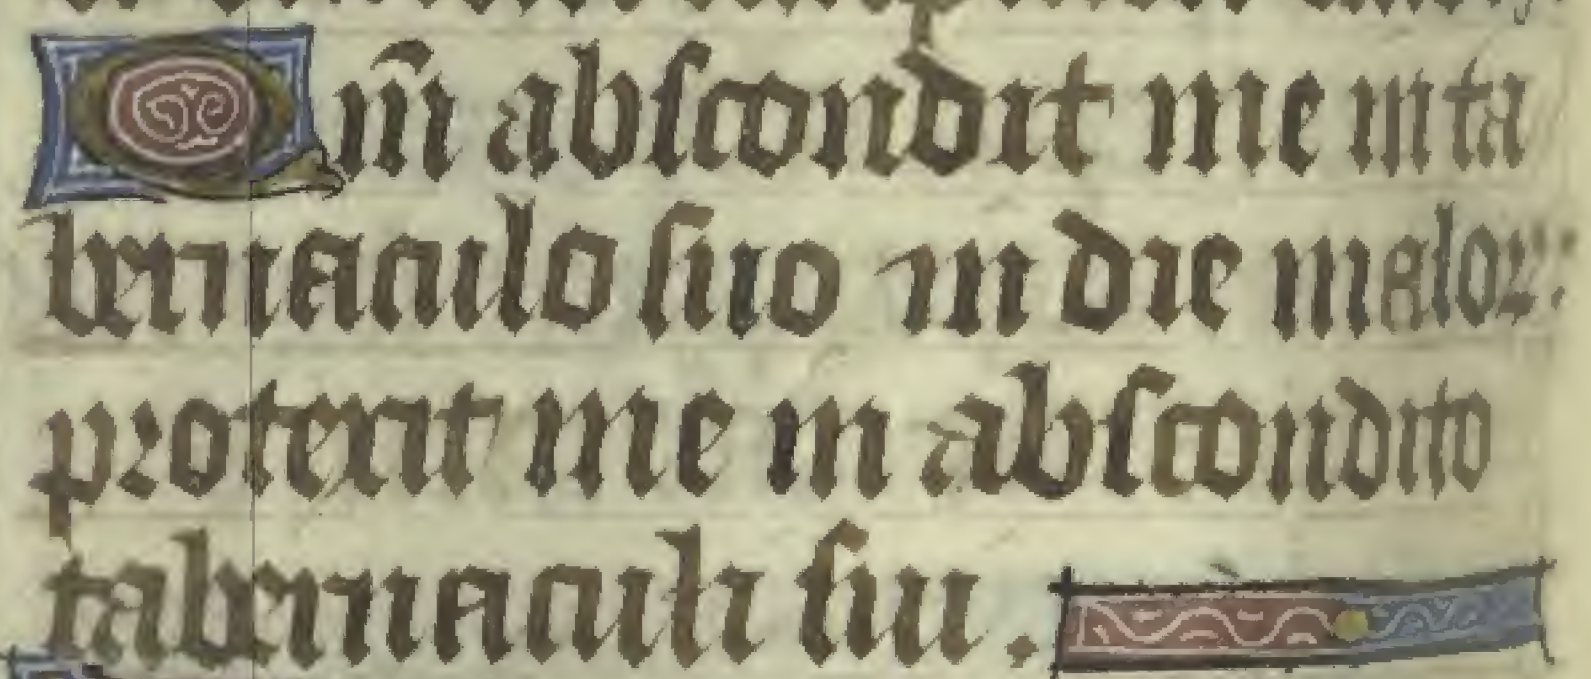 Qm̄ abscondit me in ta
bernaculo suo in die maloꝝ:
protexit me in abscondito
tabernaculi sui.